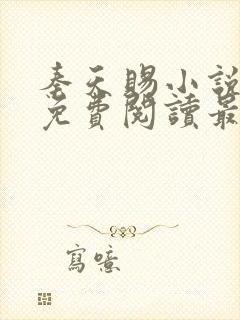 奉天賜小說
免費閱讀最
寫噫